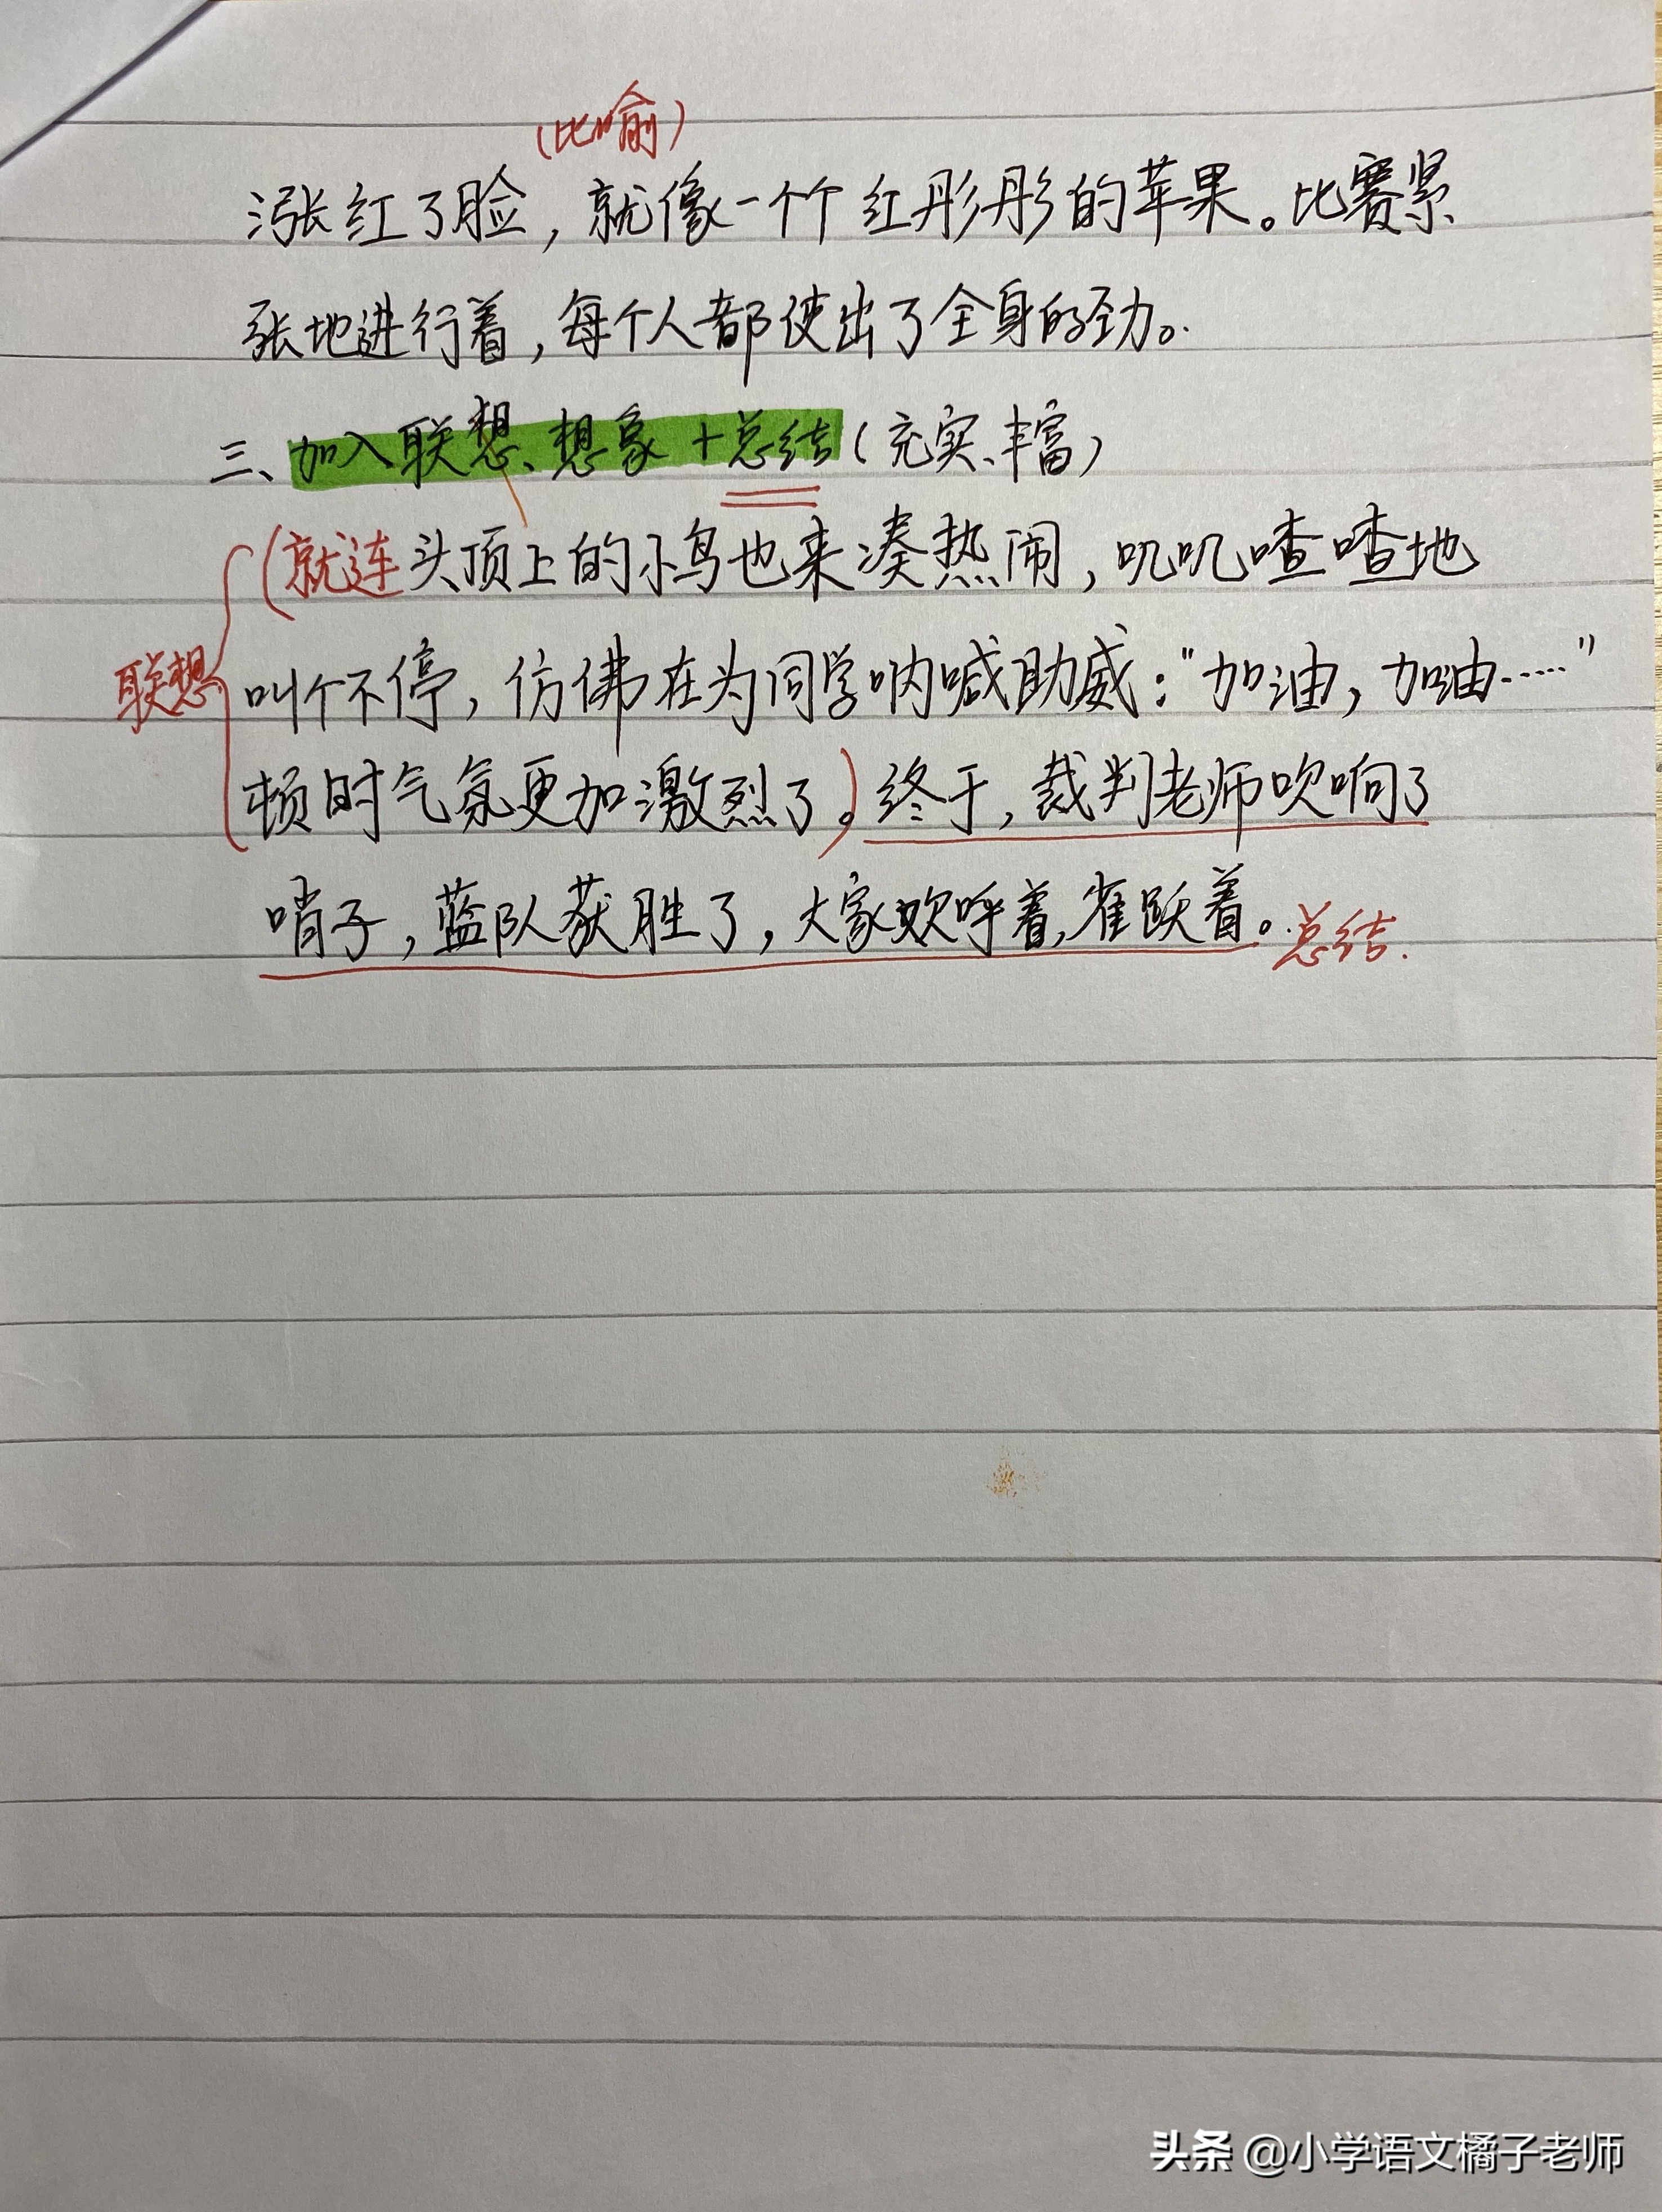 (比喻)
涨红了脸，就像一个个红彤彤的苹果。比赛紧
张地进行着，每个人都使出了全身的劲。
三、加入联想、想象＋总结(充实、丰富)
(就连头顶上的小鸟也来凑热闹，叽叽喳喳地
联想
叫个不停，仿佛在为同学呐喊助威："加油，加油……"
顿时气氛更加激烈了。)终于，裁判老师吹响了
哨子，蓝队获胜了，大家欢呼着，雀跃着。总结.
头条 @小学语文橘子老师